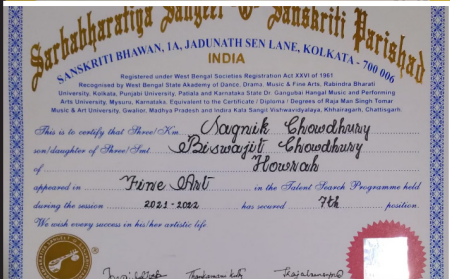 Sarbabharatiya Sangeet O Sanskriti Parishad
SANSKRITI BHAWAN, 1A, JADUNATH SEN LANE, KOLKATA - 700 006
INDIA
Registered under West Bengal Societies Registration Act XXVI of 1961
Recognised by West Bengal State Akademy of Dance, Drama, Music & Fine Arts, Rabindra Bharati
University, Kolkata, Punjabi University, Patiala and Karnataka State Dr. Gangubai Hangal Music and Performing
Arts University, Mysuru, Karnataka. Equivalent to the Certificate / Diploma / Degrees of Raja Man Singh Tomar
Music & Art University, Gwalior, Madhya Pradesh and Indira Kala Sangit Vishwavidyalaya, Khhairagarh, Chattisgarh.
This is to certify that Shree/Km. Sagnik Chowdhury
son/daughter of Shree/Smt. Biswajit Chowdhury
of Howrah
appeared in Fine Art in the Talent Search Programme held
during the session 2021-2022 has secured 7th position.
We wish every success in his/her artistic life